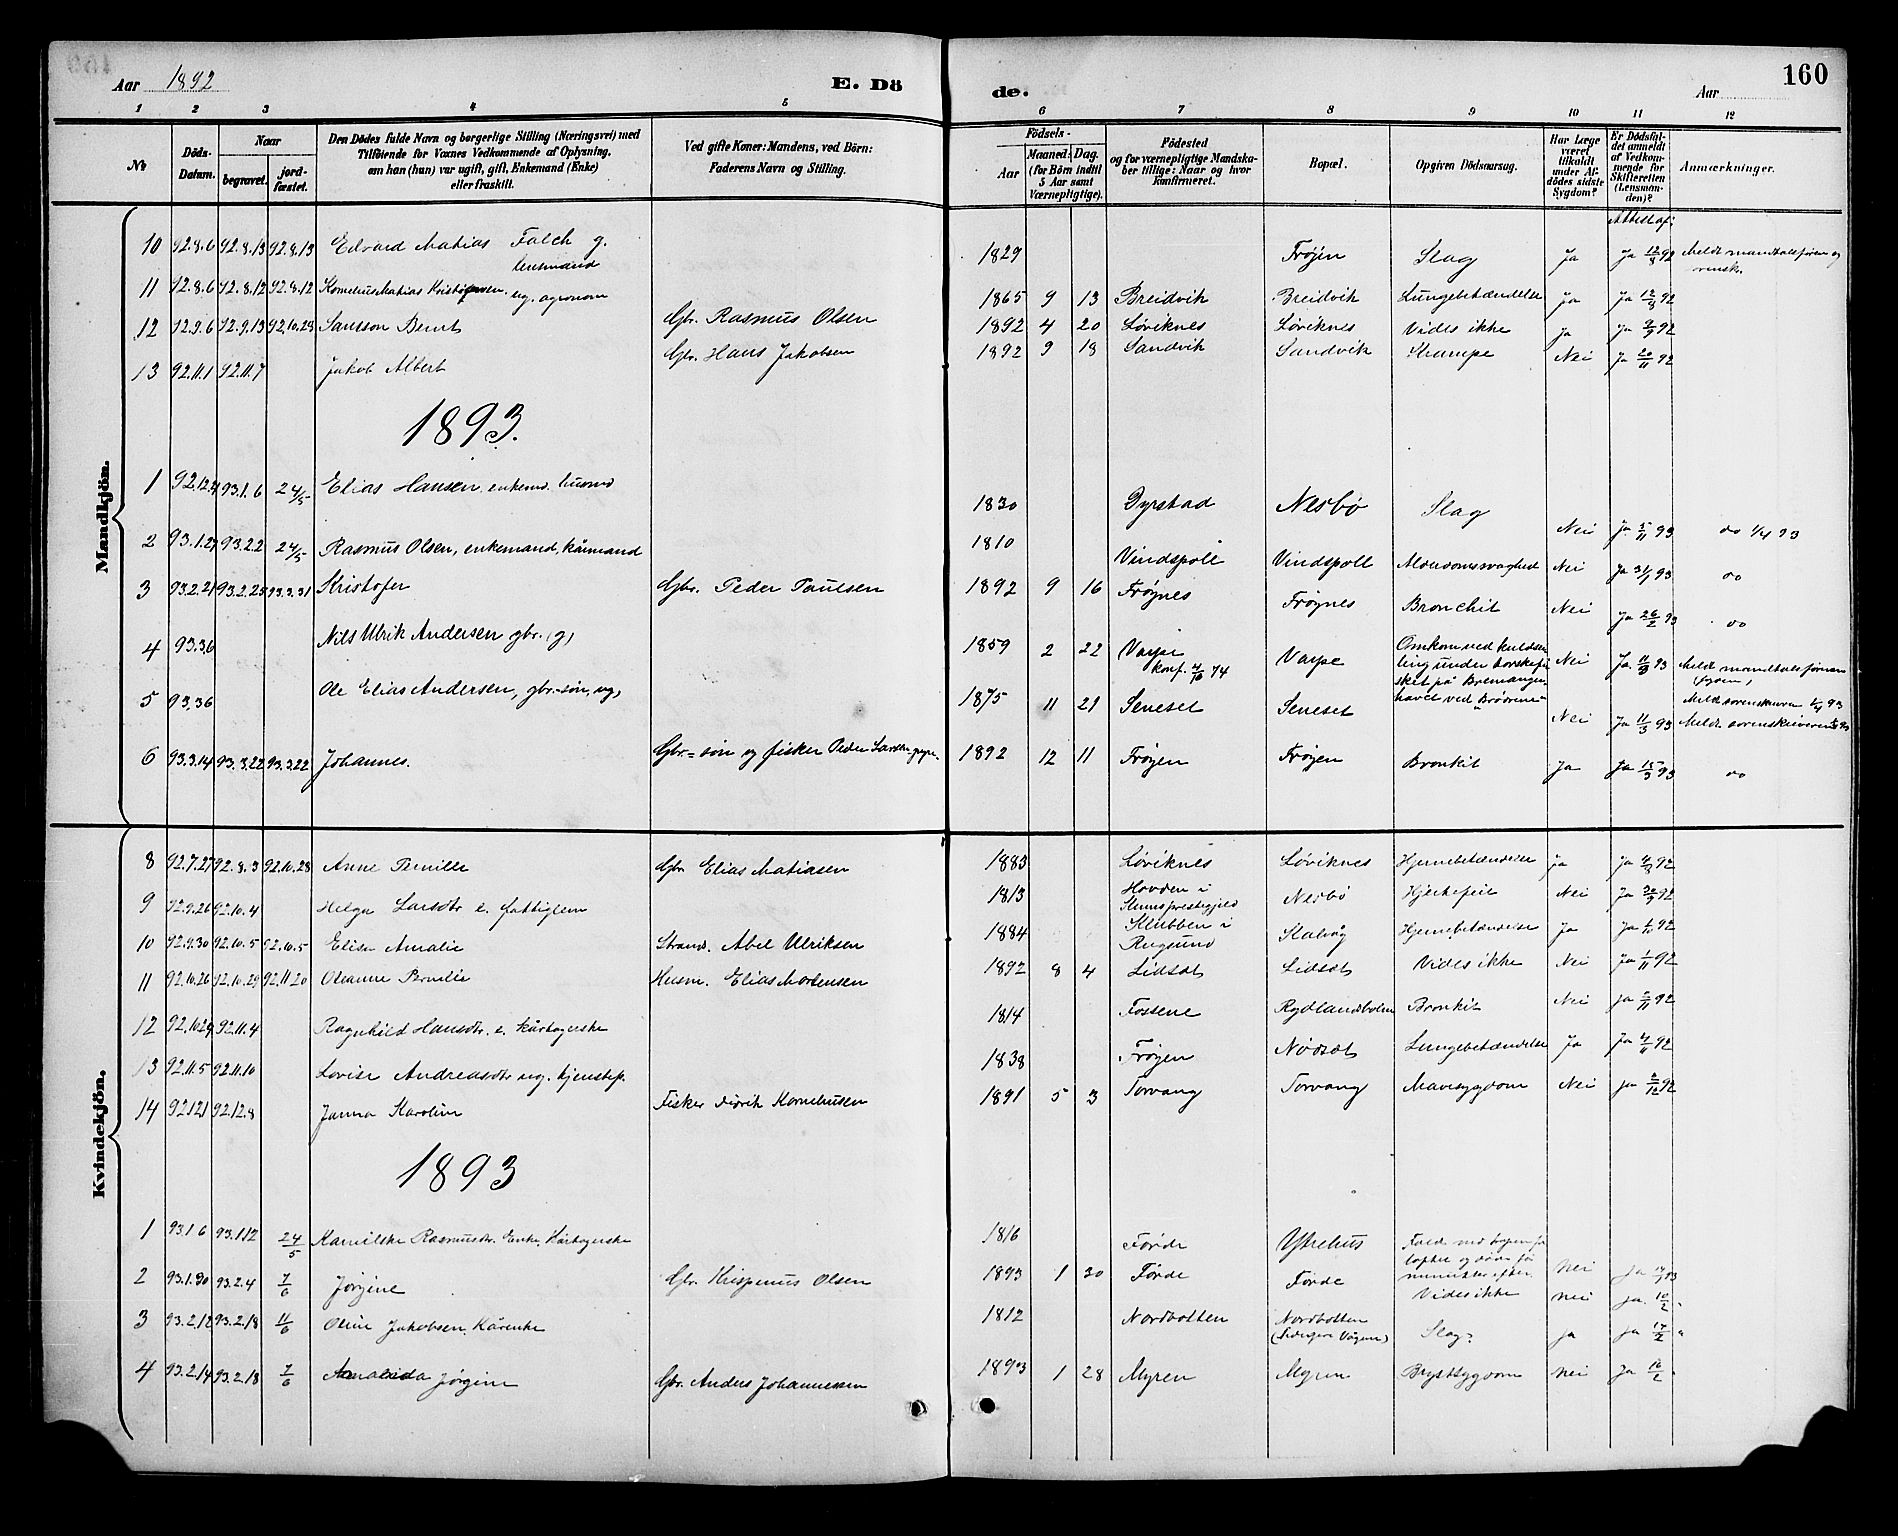 Aar 1892 E. Dö de. Aar 160
1 2 3 4 5 6 7 8 9 10 11 12
№ Döds-Datum. Naar begravet. jord-fæstet. Den Dödes fulde Navn og borgerlige Stilling (Næringsvei) med Tilföiende for Voxnes Vedkommende af Oplysning. om han (hun) var ugift, gift, Enkemand (Enke) eller fraskilt. Ved gifte Koner: Mandens, ved Börn: Faderens Navn og Stilling. Födsels- Aar Maaned: Dag. (for Börn indtil 5 Aar samt Værnepligtige). Födested og for værnepligtige Mandskaber tillige: Naar og hvor konfirmeret. Bopæl. Opgiven Dödsaarsag. Har Læge været tilkaldt under Afdödes sidste Sygdom? Er Dödsfaldet anmeldt af Vedkommende for Skifteretten (Lensmanden)? Anmærkninger.
Attest af:
Mandkjön.
10 92.8.6 92.8.13 92.8.13 Edvard Matias Falch g. lensmand 1829 Frøjen Slag Ja Ja 12/8 92
11 92.8.6 92.8.12 92.8.12 Kornelius Matias ug. agronom 1865 9 13 Breidvik Breidvik Lungebetændelse Ja Ja 12/8 92
12 92.9.6 92.9.13 92.10.28 Samson Bernt Gbr. Rasmus Olsen 1892 4 20 Løviknes Løviknes Vides ikke Ja Ja 92
13 92.11.1 92.11.7 Jakob Albert Gbr. Hans Jakobsen 1892 9 18 Sandvik Sandvik Krampe Nei Ja 20/11 92
1893.
1 93.1.6 24/5 Elias Hansen, enkem. husmd 1830 Dyrstad Nesbø Slag Nei Ja 93 do 1/4 93
2 93.1.27 93.2.2 24/5 Rasmus Olsen, enkemand, kårmand 1810 Vindspoll Vindspoll Alderdomssvaghed Nei Ja 31/1 93 do
3 93.2.21 93.2.25 93.3.31 Kristofer Gbr. Peder Paulsen 1892 9 16 Frøynes Frøynes Bronchit Nei Ja 26/2 93 do
4 93.3.6 Nils Ulrik Andersen gbr. (g) 1859 2 22 Varpe konf. 74 Varpe Omkom ved kuldseiling under torskefisket på Bremangerhavet ved "Brødrene" Nei Ja 11/3 93
5 93.3.6 Ole Elias Andersen, gbr-søn, ug, 1875 11 21 Seneset Seneset Nei Ja 11/3 93
6 93.3.14 93.3.22 93.3.22 Johannes. Gbr.-søn og fisker Peder Larsen 1892 12 11 Frøyen Frøyen Bronkit Ja Ja 15/3 93 do
Kvindekjön.
8 92.7.27 92.8.3 92.10.28 Anne Pernille Gbr Elias Matiasen 1883 Løviknes Løviknes Hjernebetændelse Ja Ja 92
9 92.9.26 92.10.4 Helga Larsdtr e. fattiglem 1813 Hovden i Nesbø Hjertefeil Nei Ja 30/9 92
10 92.9.30 92.10.5 92.10.5 Elisa Amalie Strands. Abel Ulriksen 1884 Klubben i Rugsund Kalvåg Hjernebetændelse Ja Ja 92
11 92.10.26 92.10.29 92.11.20 Oleanne Pernille Husm. Elias Mortensen 1892 8 4 Lidsæt Lidsæt Vides ikke Nei Ja 1/11 92
12 92.10.29 92.11.4 Ragnhild Hansdtr. e. kårtagerske 1814 Fossene Rydlandsbotnen Bronkit Nei Ja 92
13 92.11.5 92.11.10 Lovise Andreasdtr ug. tjenstep. 1838 Frøyen Nødsæt Lungebetændelse Ja Ja 92
14 92.12.1 92.12.8 Janna Karoline Fisker Didrik Korneliussen 1891 5 3 Torvang Torvang Mavesygdom Nei Ja 2/12 92
1893
1 93.1.6 93.1.12 24/5 Rasmusdtr. Enke, Kårtagerske 1816 Førde Ytrehus Faldt ned
2 93.1.30 93.2.4 7/6 Jørgine Gbr. Krispinus Olsen 1893 1 30 Førde Førde Vides ikke Nei Ja 10/2
3 93.2.12 93.2.18 11/6 Oline Jakobsen, Kårenke 1812 Nordbotten Nordbotten Slag. ja ja 17/2 "
4 93.2.14 93.2.18 7/6 Jørgine Gbr. Anders Johannessen 1893 1 28 Myren Myren Brystsygdom Nei Ja 16/2